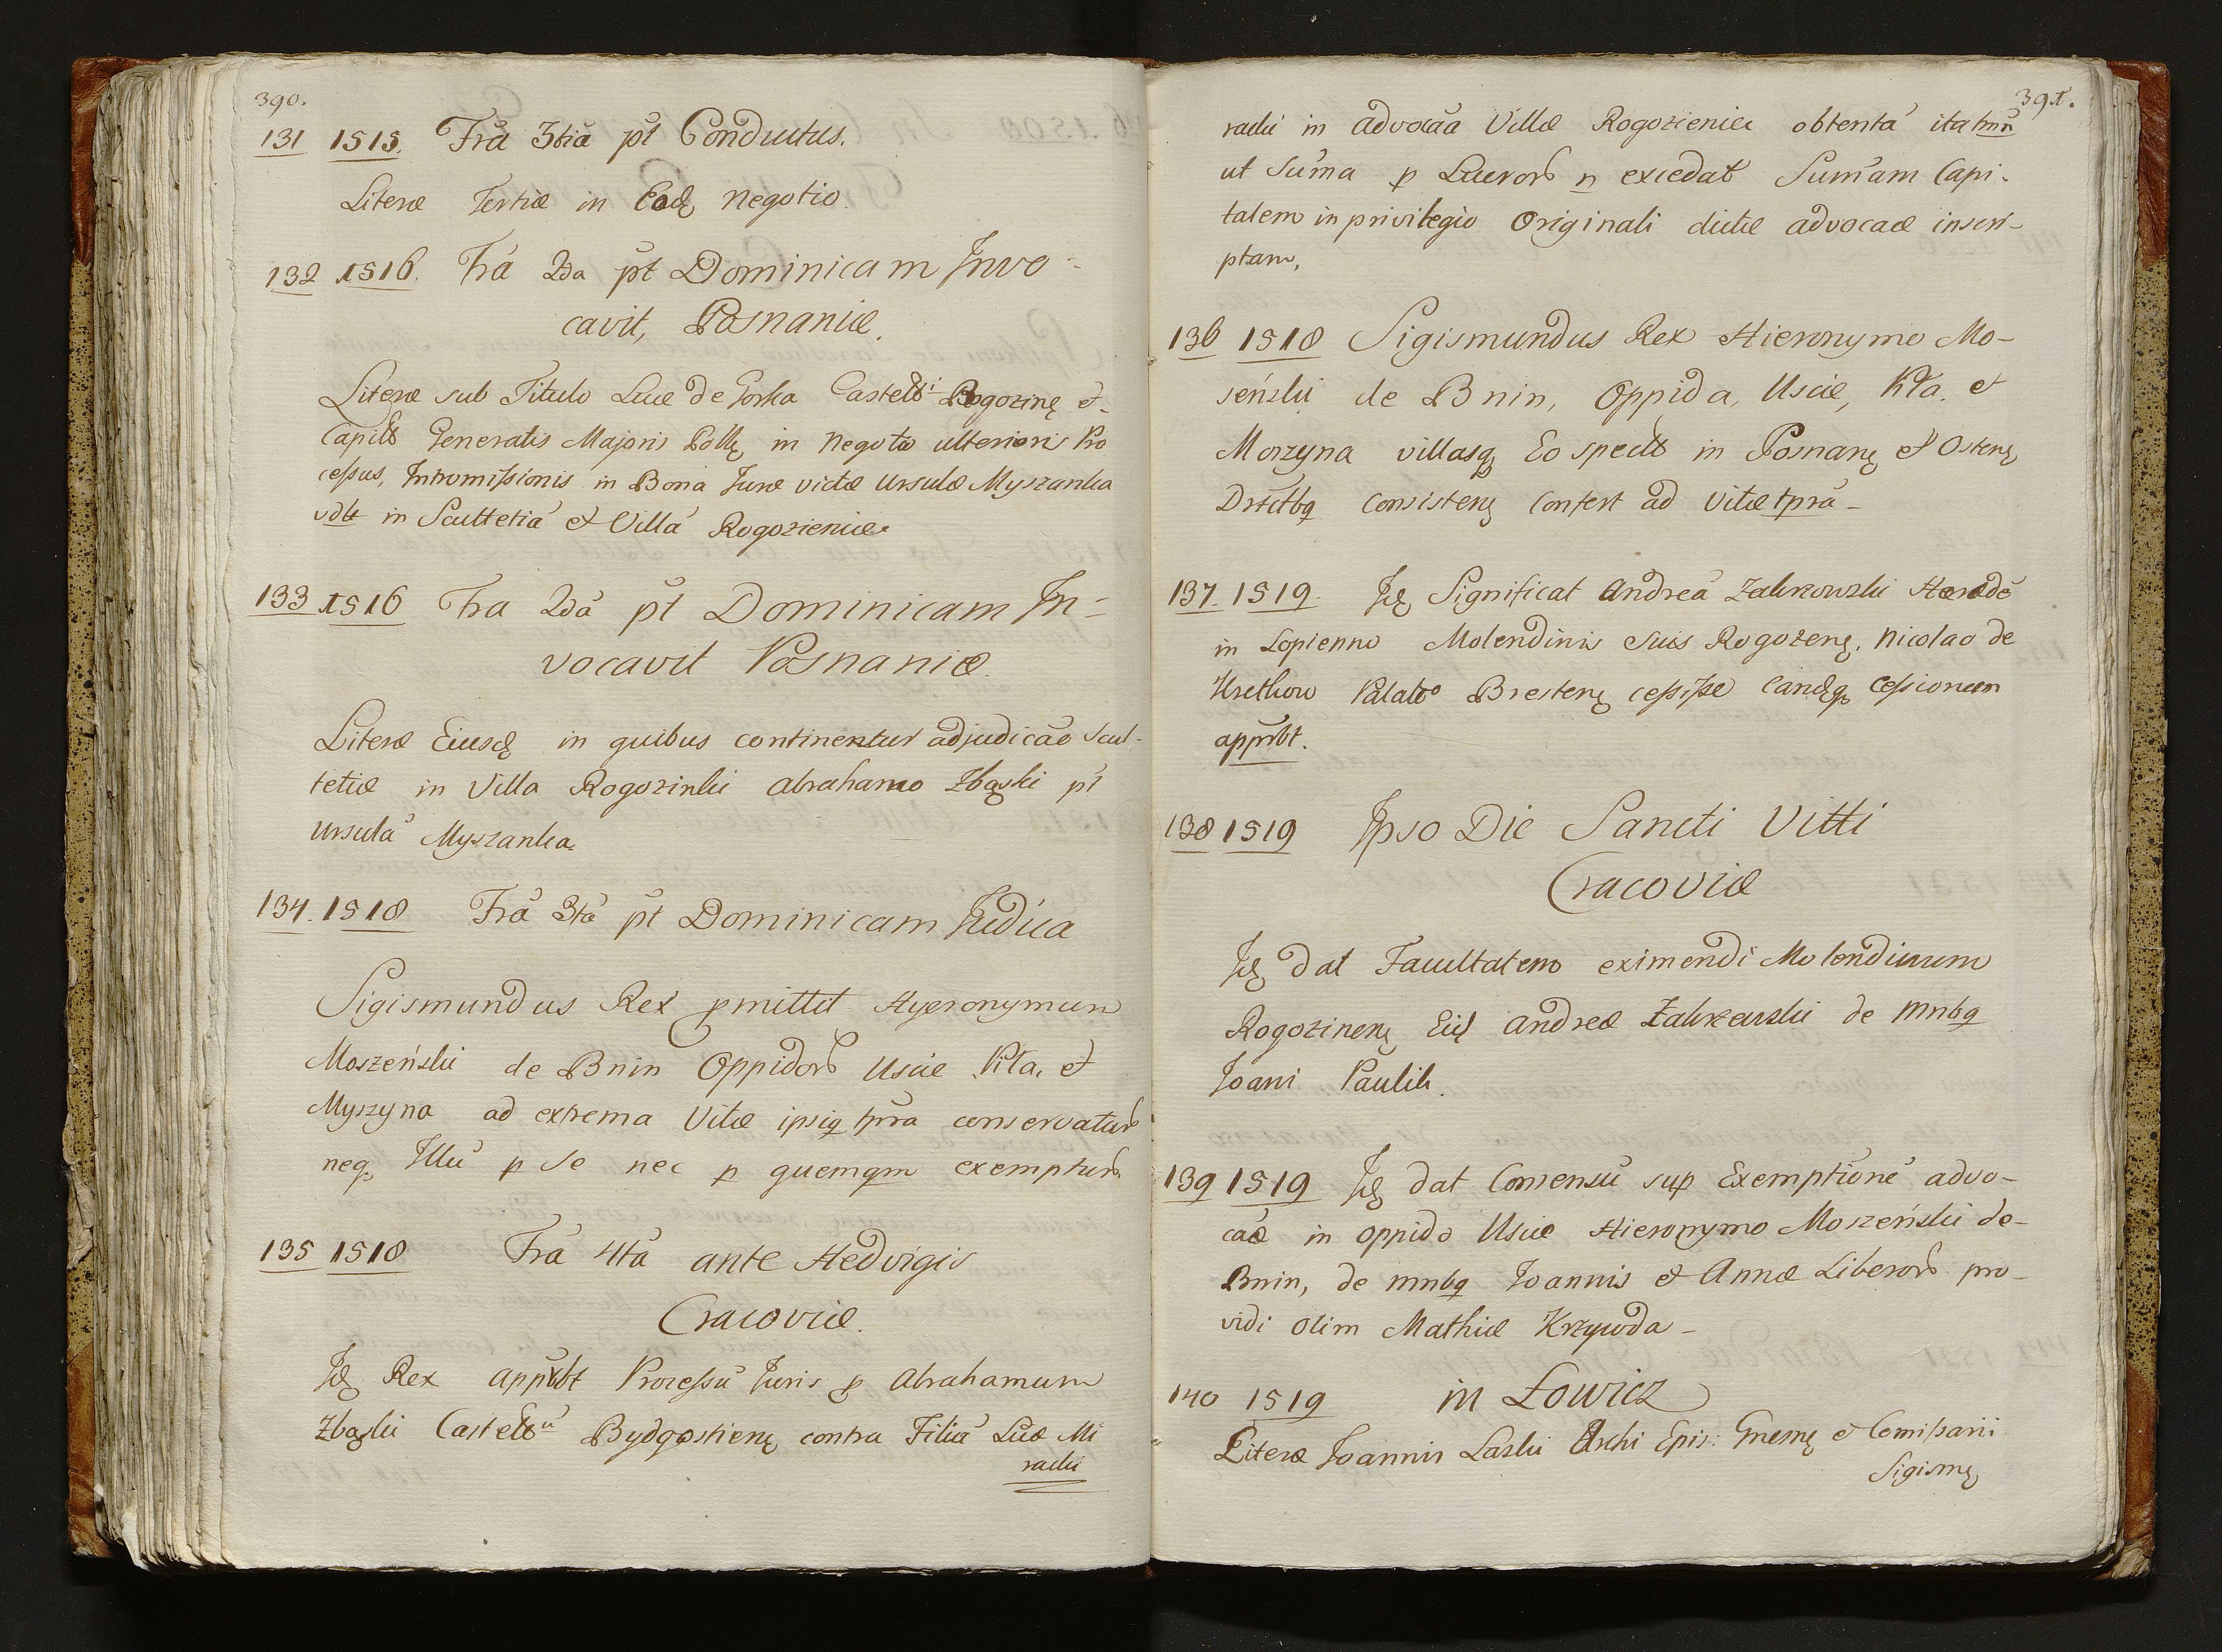 390.
131 1515. Frã 3tiã pt̃ Conductus.
Literæ Tertiæ in Eodę negotio.
132 1516. Frã 2da pt̃ Dominicam Invo-
cavit, Posnaniæ.
Literæ sub Titulo Lucæ de Gorka Castell Rogozinę et
Capit Generalis Majoris Pollę in negotio ulterioris Pro
cessus, Intromissionis in Bona Jure victæ Ursulæ Myszanka
vdlt in Scultetiã et Villã Rogozieniec
133 1516 Fra 2dã pt̃ Dominicam In-
vocavit Posnaniæ.
Literæ Eiusdę in quibus continentur adjudicão Scul-
tetiæ in Villa Rogozinki Abrahamo Zbąski pt̃
Ursulã Myszanka.
134. 1518 Frã 3tã pt̃ Dominicam Judica
Sigismundus Rex pmittit Hyeronymum
Moszeński de Bnin Oppidor Uscie Piła, et
Myszyna ad extrema Vitæ ipsiq tpra conservatur
neq Illũ p se nec p quemqm exempturũ
135 1518 Frã 4tã ante Hedvigis
Cracoviæ.
Idę Rex apprbt Processũ Juris p Abrahamum
Zbąski Castell Bydgostienę contra Filiã Lucæ Mi
racki
391.
racki in advocãa Villæ Rogozieniec obtentã ita tmñ
ut Sum̃a p Lucror n̲ excedat Sum̃am Capi-
talem in privilegio Originali dictæ advocaæ inscri-
ptam,
136 1518 Sigismundus Rex Hieronymo Mo-
seński de Bnin, Oppida, Uscie, Piła, et
Morzyna villasq Eo spectt in Posnanę et Ostenę
Drictbq consistenę confert ad Vitæ tprã-
137. 1519. Idę Significat Andreã Zakrzowski Hæredẽ
in Lopienno Molendinis suis Rogozenę. Nicolao de
Krethow Palato Brestenę cessisse Eandęq Cessionem
apprbt.
138 1519 Ipso Die Sancti Vitti
Cracoviæ
Idę Dat Facultatem eximendi Molendinum
Rogozinenę Eię Andreæ Zakrzewski de mnbq
Joani Paulik.
139 1519 Idę dat Consensũ sup Exemptionẽ advo-
cãæ in oppido Uscie Hieronymo Moszeński de-
Bnin, de mnbq Joannis et Annæ Liberor pro-
vidi olim Mathiæ Krzywda-
140 1519 in Łowicz
Literæ Joannis Laski Archi Epis: Gnesnę et Comissarii
Sigismę